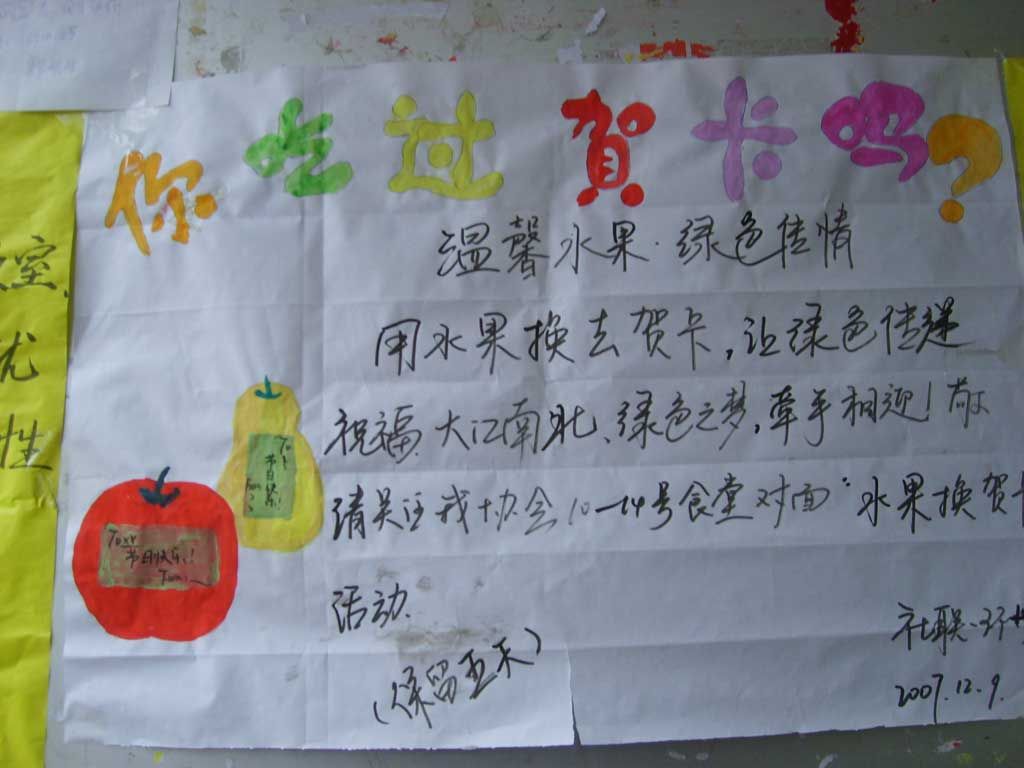 你吃过贺卡吗?
温馨水果·绿色传情
用水果换去贺卡,让绿色传递
祝福.大江南北、绿色之梦,牵手相迎!敬
请关注我协会10—14号食堂对面“水果换贺卡
活动.
(保留至禾)
社联·环
2007.12.9.
节日快乐!
节日快乐!
室
优
性